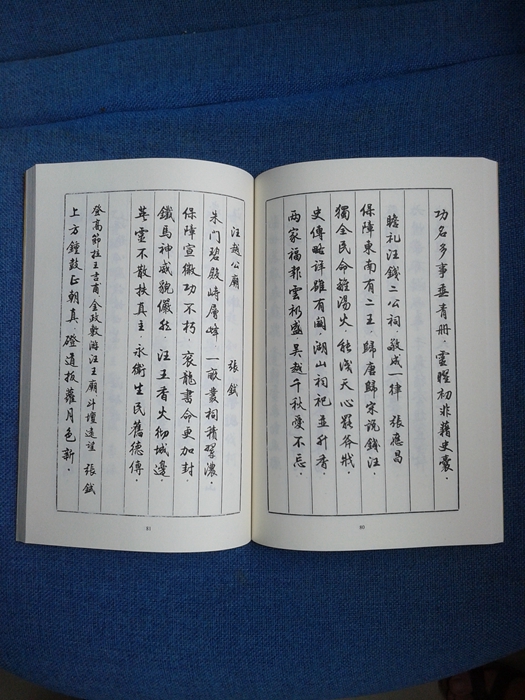 功名多事垂青册·靈貺初非藉史囊·
瞻礼汪錢二公祠敬成一律 張應昌
保障東南有二王·歸唐歸宋說錢汪·
獨全民命離湯火·能淺天心罷斧戕·
史傳略詳雖有閒·湖山祠祀並升香·
两家福祚雲礽盛·吴越千秋爱不忘·
80
汪越公廟 張鉽
朱门碧殿峙層峰·一畝叢祠積翠濃·
保障宣徽功不朽·衮龍書命更加封·
鐵馬神威貌儼然·汪王香火徹城邊·
英靈不散扶真主·永衛生民舊德傳·
登高節柱王吉甫全政敷游汪王廟斗壇遠望 張鉽
上方鐘鼓正朝真·磴道扳蘿月色新·
81